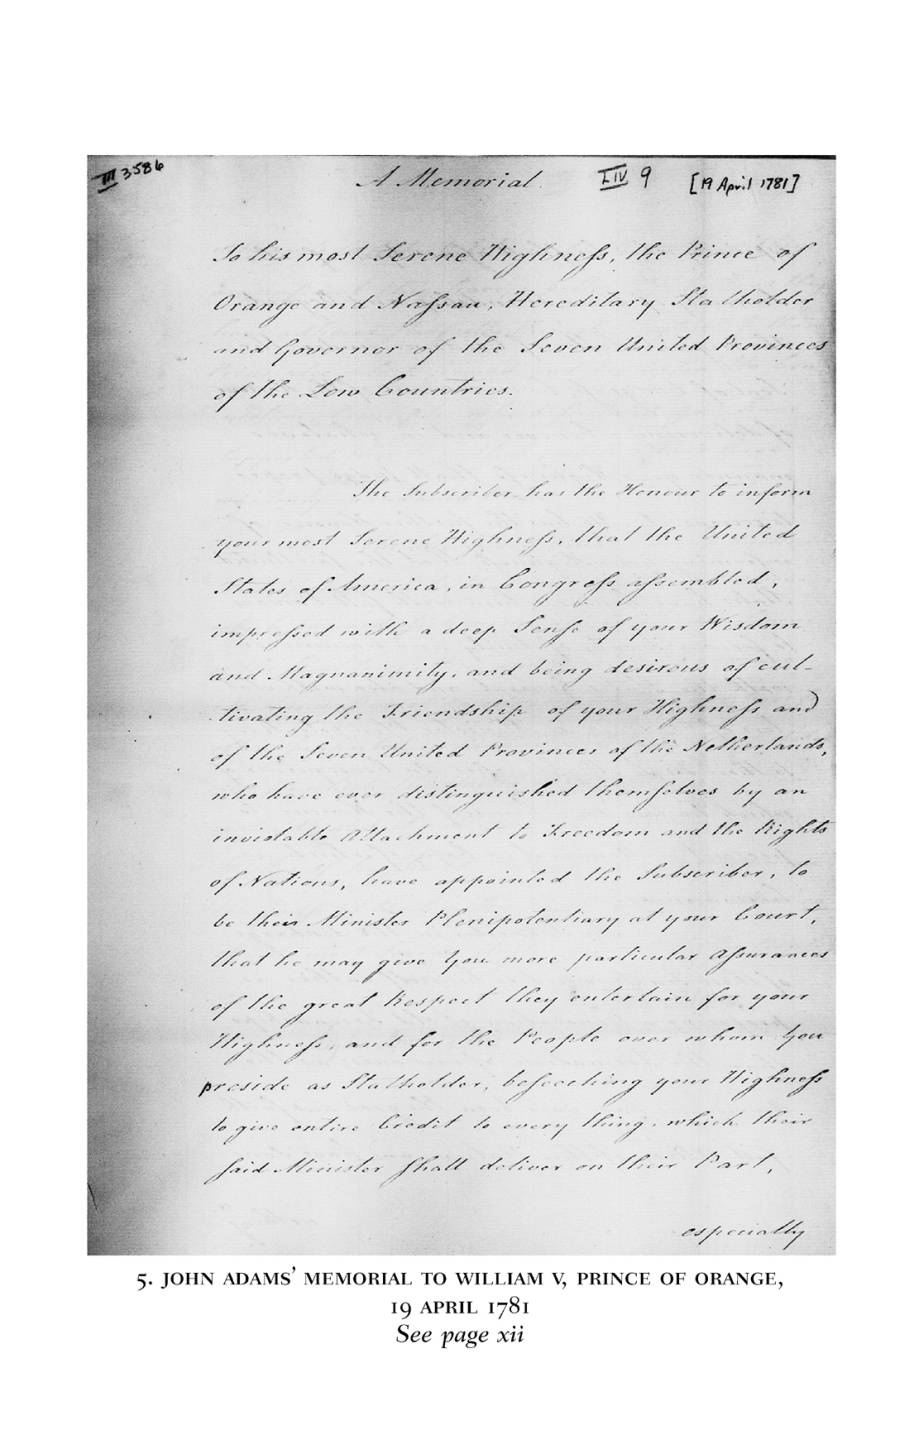 III 3586
A Memorial
LIV 9
[19 April 1781]
To his most Serene Highneſs, the Prince of
Orange and Naſsau, Hereditary Statholder
and Governor of the Seven United Provinces
of the Low Countries.
The Subscriber has the Honour to inform
your most Serene Highneſs, that the United
States of America, in Congreſs aſsembled,
impreſsed with a deep Sense of your Wisdom
and Magnanimity, and being desirous of cul-
tivating the Friendship of your Highneſs and
of the Seven United Provinces of the Netherlands,
who have ever distinguished themſelves by an
inviolable Attachment to Freedom and the Rights
of Nations, have appointed the Subscriber, to
be their Minister Plenipotentiary at your Court,
that he may give You more particular Aſsurances
of the great Respect they entertain for your
Highneſs, and for the People over whom You
preside as Statholder, beſeeching your Highneſs
to give entire Credit to every thing, which their
ſaid Minister ſhall deliver on their Part,
especially
5. JOHN ADAMS' MEMORIAL TO WILLIAM V, PRINCE OF ORANGE,
19 APRIL 1781
See page xii